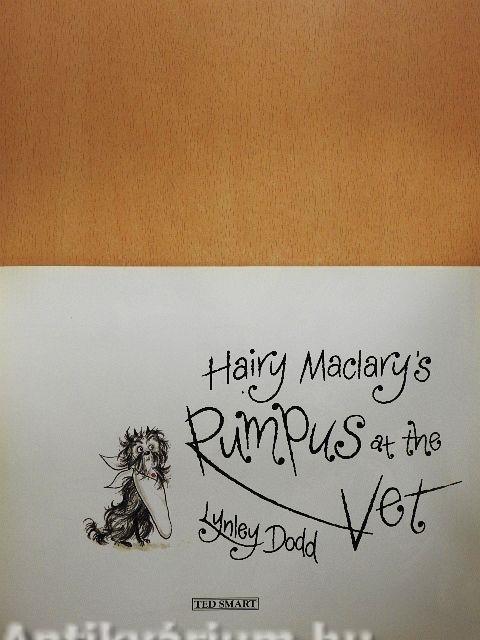 Hairy Maclary's
Rumpus at the
Vet
Lynley Dodd
TED SMART
Antikvárium.hu